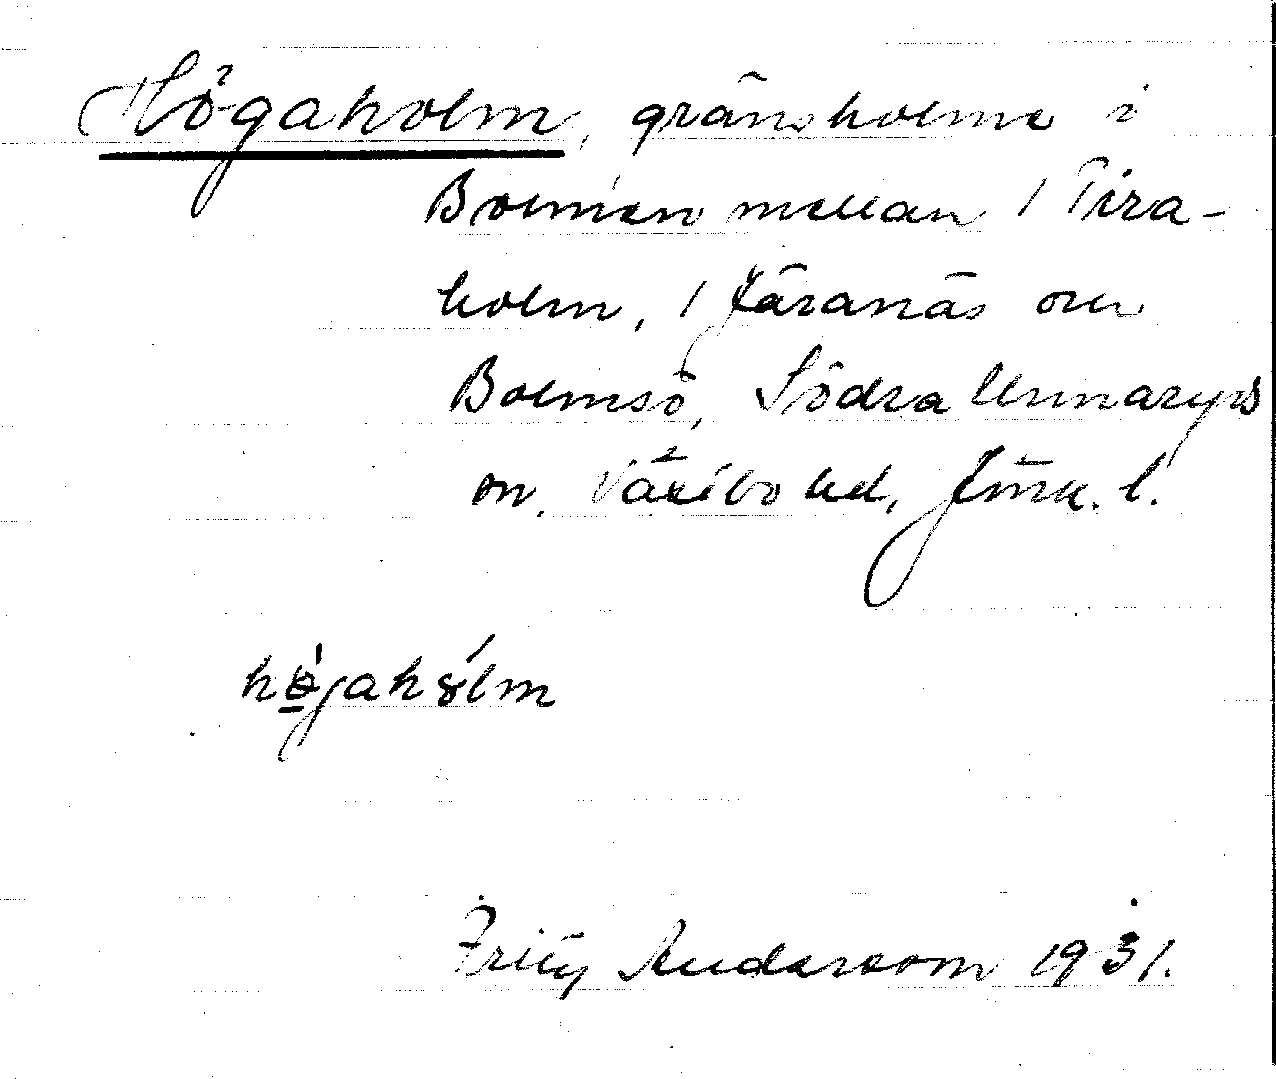 Högaholm, gränsholme i
Bolmen mellan 1 Tira-
holm, 1 Färanäs och
Bolmsö, Södra Unnaryds
sn. Västbo hd, Jönk. l.
högahólm
Fritz Andersson 1931.